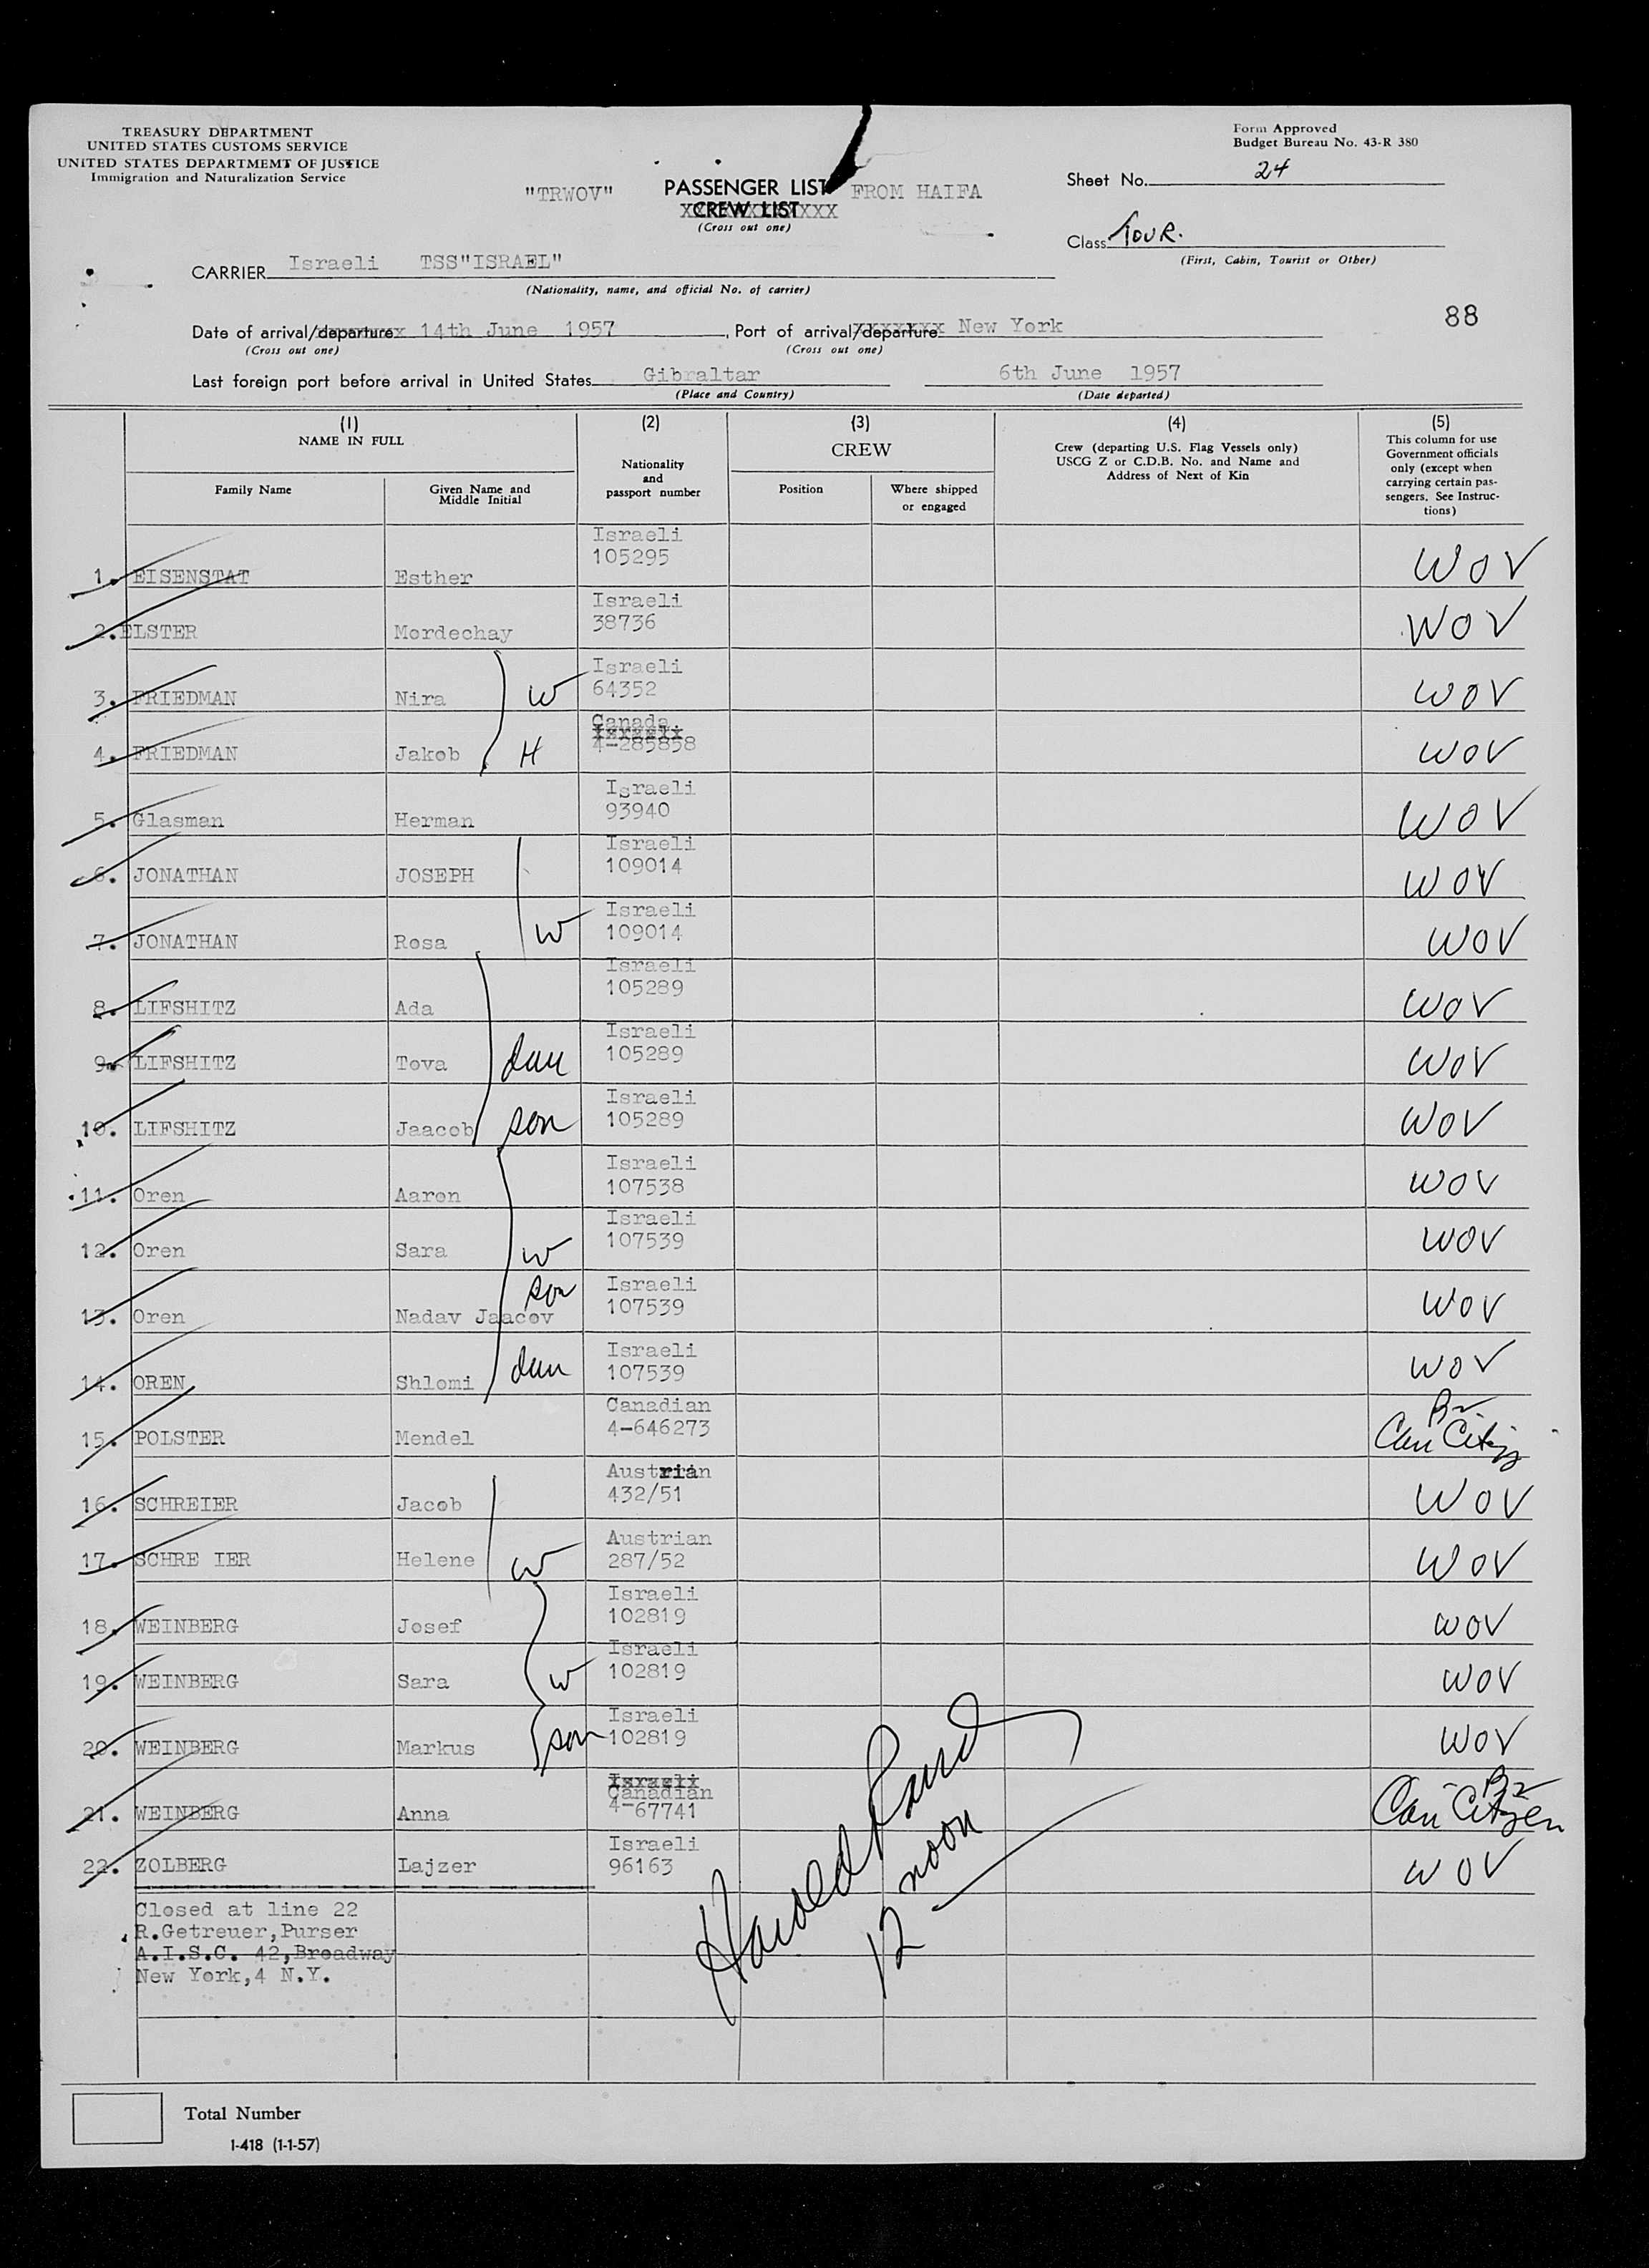 TREASURY DEPARTMENT
UNITED STATES CUSTOMS SERVICE
UNITED STATES DEPARTMEMT OF JUSTICE
Immigration and Naturalization Service
Form Approved
Budget Bureau No. 43-R 380
"TRWOV" PASSENGER LIST FROM HAIFA
CREW LIST
(Cross out one)
Sheet No. 24
Class TOUR.
(First, Cabin, Tourist or Other)
CARRIER Israeli TSS"ISRAEL"
(Nationality, name, and official No. of carrier)
88
Date of arrival/departure 14th June 1957, Port of arrival/departure New York
(Cross out one) (Cross out one)
Last foreign port before arrival in United States Gibraltar 6th June 1957
(Place and Country) (Date departed)
(1) NAME IN FULL
Family Name
Given Name and Middle Initial
(2)
Nationality and passport number
(3)
CREW
Position
Where shipped or engaged
(4)
Crew (departing U.S. Flag Vessels only)
USCG Z or C.D.B. No. and Name and
Address of Next of Kin
(5)
This column for use
Government officials
only (except when
carrying certain pas-
sengers. See Instruc-
tions)
1. EISENSTAT Esther Israeli 105295 WOV
2. ELSTER Mordechay Israeli 38736 WOV
3. FRIEDMAN Nira W Israeli 64352 WOV
4. FRIEDMAN Jakob H Canada Israeli 4-285858 WOV
5. Glasman Herman Israeli 93940 WOV
6. JONATHAN JOSEPH Israeli 109014 WOV
7. JONATHAN Rosa W Israeli 109014 WOV
8. LIFSHITZ Ada Israeli 105289 WOV
9. LIFSHITZ Tova dau Israeli 105289 WOV
10. LIFSHITZ Jaacob son Israeli 105289 WOV
11. Oren Aaron Israeli 107538 WOV
12. Oren Sara W Israeli 107539 WOV
13. Oren Nadav Jaacov son Israeli 107539 WOV
14. OREN Shlomi dau Israeli 107539 WOV
15. POLSTER Mendel Canadian 4-646273 Can Citizen
16. SCHREIER Jacob Austrian 432/51 WOV
17. SCHRE IER Helene W Austrian 287/52 WOV
18. WEINBERG Josef Israeli 102819 WOV
19. WEINBERG Sara W Israeli 102819 WOV
20. WEINBERG Markus son Israeli 102819 WOV
21. WEINBERG Anna Israeli Canadian 4-67741 Can Citizen
22. ZOLBERG Lajzer Israeli 96163 WOV
Closed at line 22
R.Getreuer,Purser
A.I.S.C. 42,Broadway
New York,4 N.Y.
Harold
12 noon
Total Number
I-418 (1-1-57)